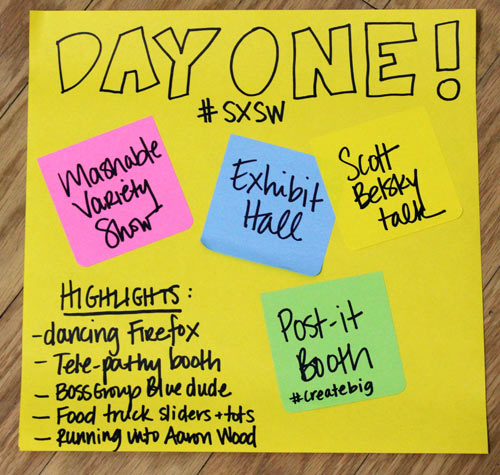 DAY ONE!
#SXSW
Mashable
Variety
Show
Exhibit
Hall
Scott
Belsky
talk
HIGHLIGHTS:
-dancing Firefox
- Tele-pathy booth
- BossGroup Blue dude
- Food truck sliders + tots
- Running into Aaron Wood
Post-it
Booth
#createbig